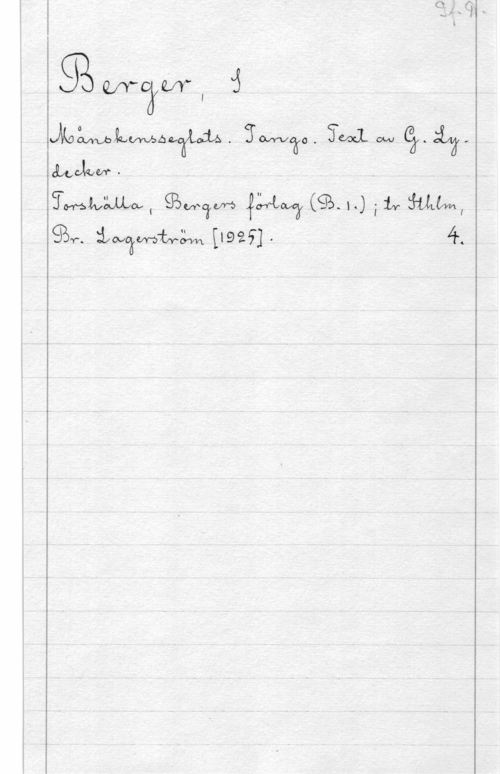 Berger, J
Månskensseglats. Tango. Text av G. Ly-
decker.
Torshälla, Bergers förlag (B. 1.) ; tr Sthlm,
Br. Lagerström [1925]. 4.